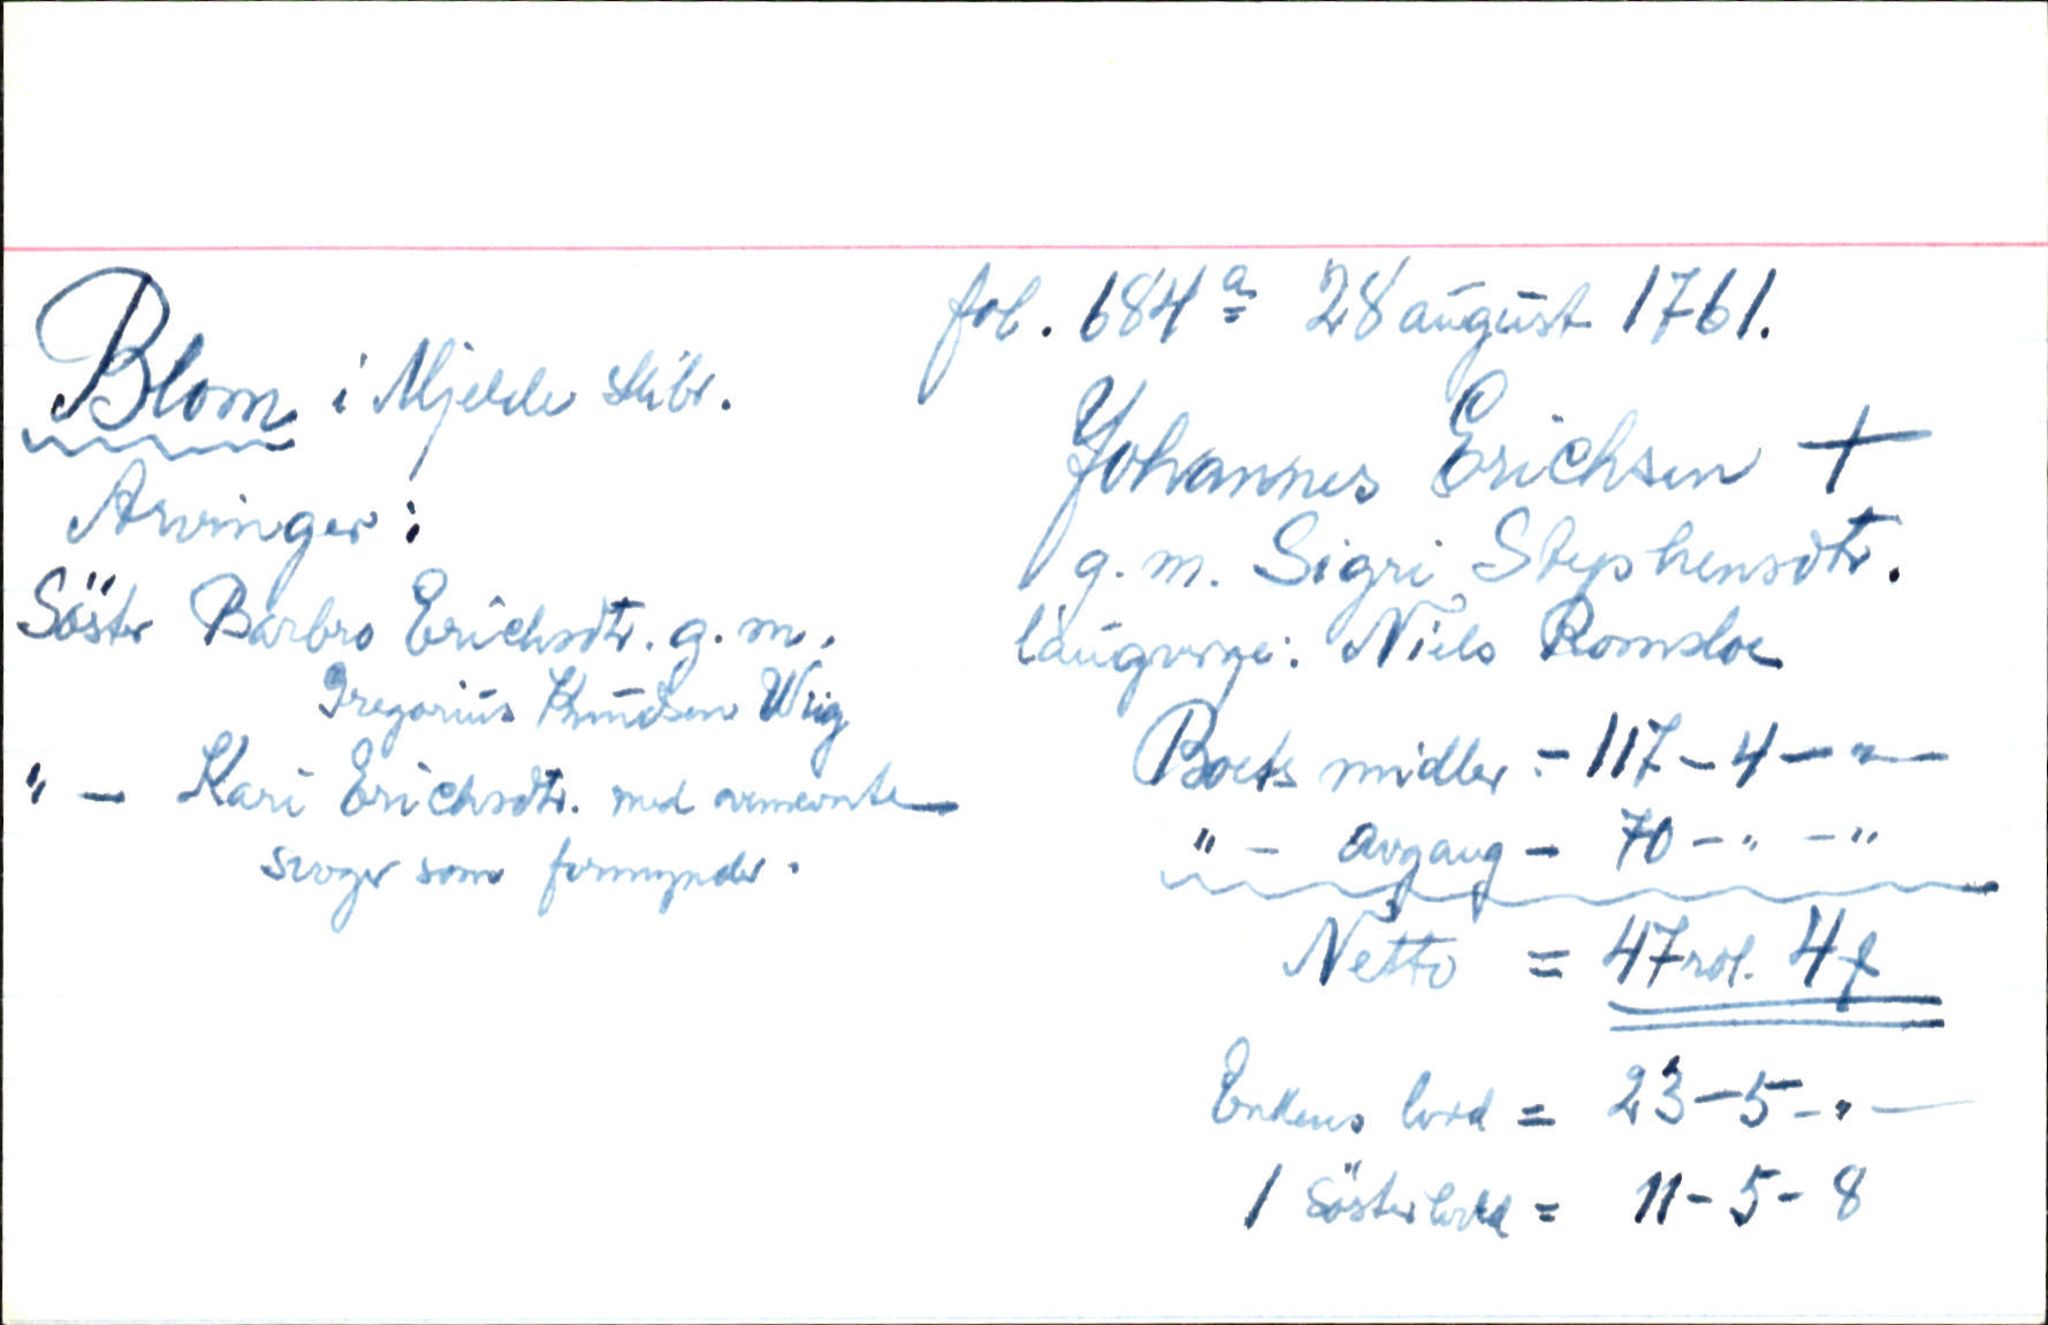 fol. 684 a 28 august 1761.
Blom i Mjelde skibr.
Johannes Erichsen +
g.m. Sigri Stephensdtr.
laugverge: Niels Romsloe
Arvinger:
Söster Barbro Erichsdtr. g.m.
Gregorius Knudsen
" - Kari Erichsdtr. med ovnevnte
svoger som formynder.
Boets midler - 117 - 4 - " -
" - avgang - 70 - " - "
Netto = 47 rdl. 4
Enkens lodd = 23 - 5 - " -
1 Søsterlodd = 11 - 5 - 8